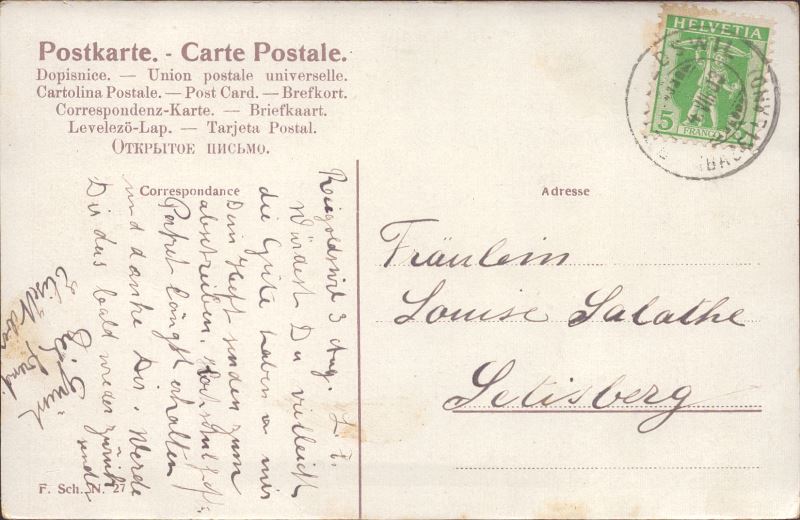 Postkarte. - Carte Postale.
Dopisnice. — Union postale universelle.
Cartolina Postale. — Post Card. — Brefkort.
Correspondenz-Karte. — Briefkaart.
Levelezö-Lap. — Tarjeta Postal.
Открытое письмо.
HELVETIA
5
FRANCO
Correspondance
Adresse
Reigoldswil 3 Aug.
L. F.
Würdest Du vielleicht
die Güte haben u mir
Dein Heft senden zum
abschreiben.
Packet längst erhalten
und danke Dir. Werde
Dir das bald wieder zurück
senden
Fräulein
Louise Salathe
Setisberg
F. Sch. N. 27